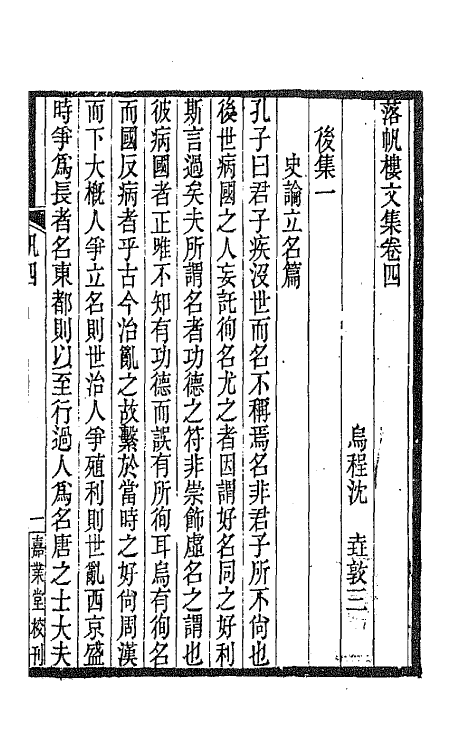 落帆樓文集卷四
烏程沈 垚敦三
後集一
史論立名篇
孔子曰君子疾沒世而名不稱焉名非君子所不尙也
後世病國之人妄託徇名尤之者因謂好名同之好利
斯言過矣夫所謂名者功德之符非崇飾虛名之謂也
彼病國者正唯不知有功德而誤有所徇耳烏有徇名
而國反病者乎古今治亂之故繫於當時之好尙周漢
而下大槪人爭立名則世治人爭殖利則世亂西京盛
時爭爲長者名東都則以至行過人爲名唐之士大夫
帆四
一
嘉業堂校刊